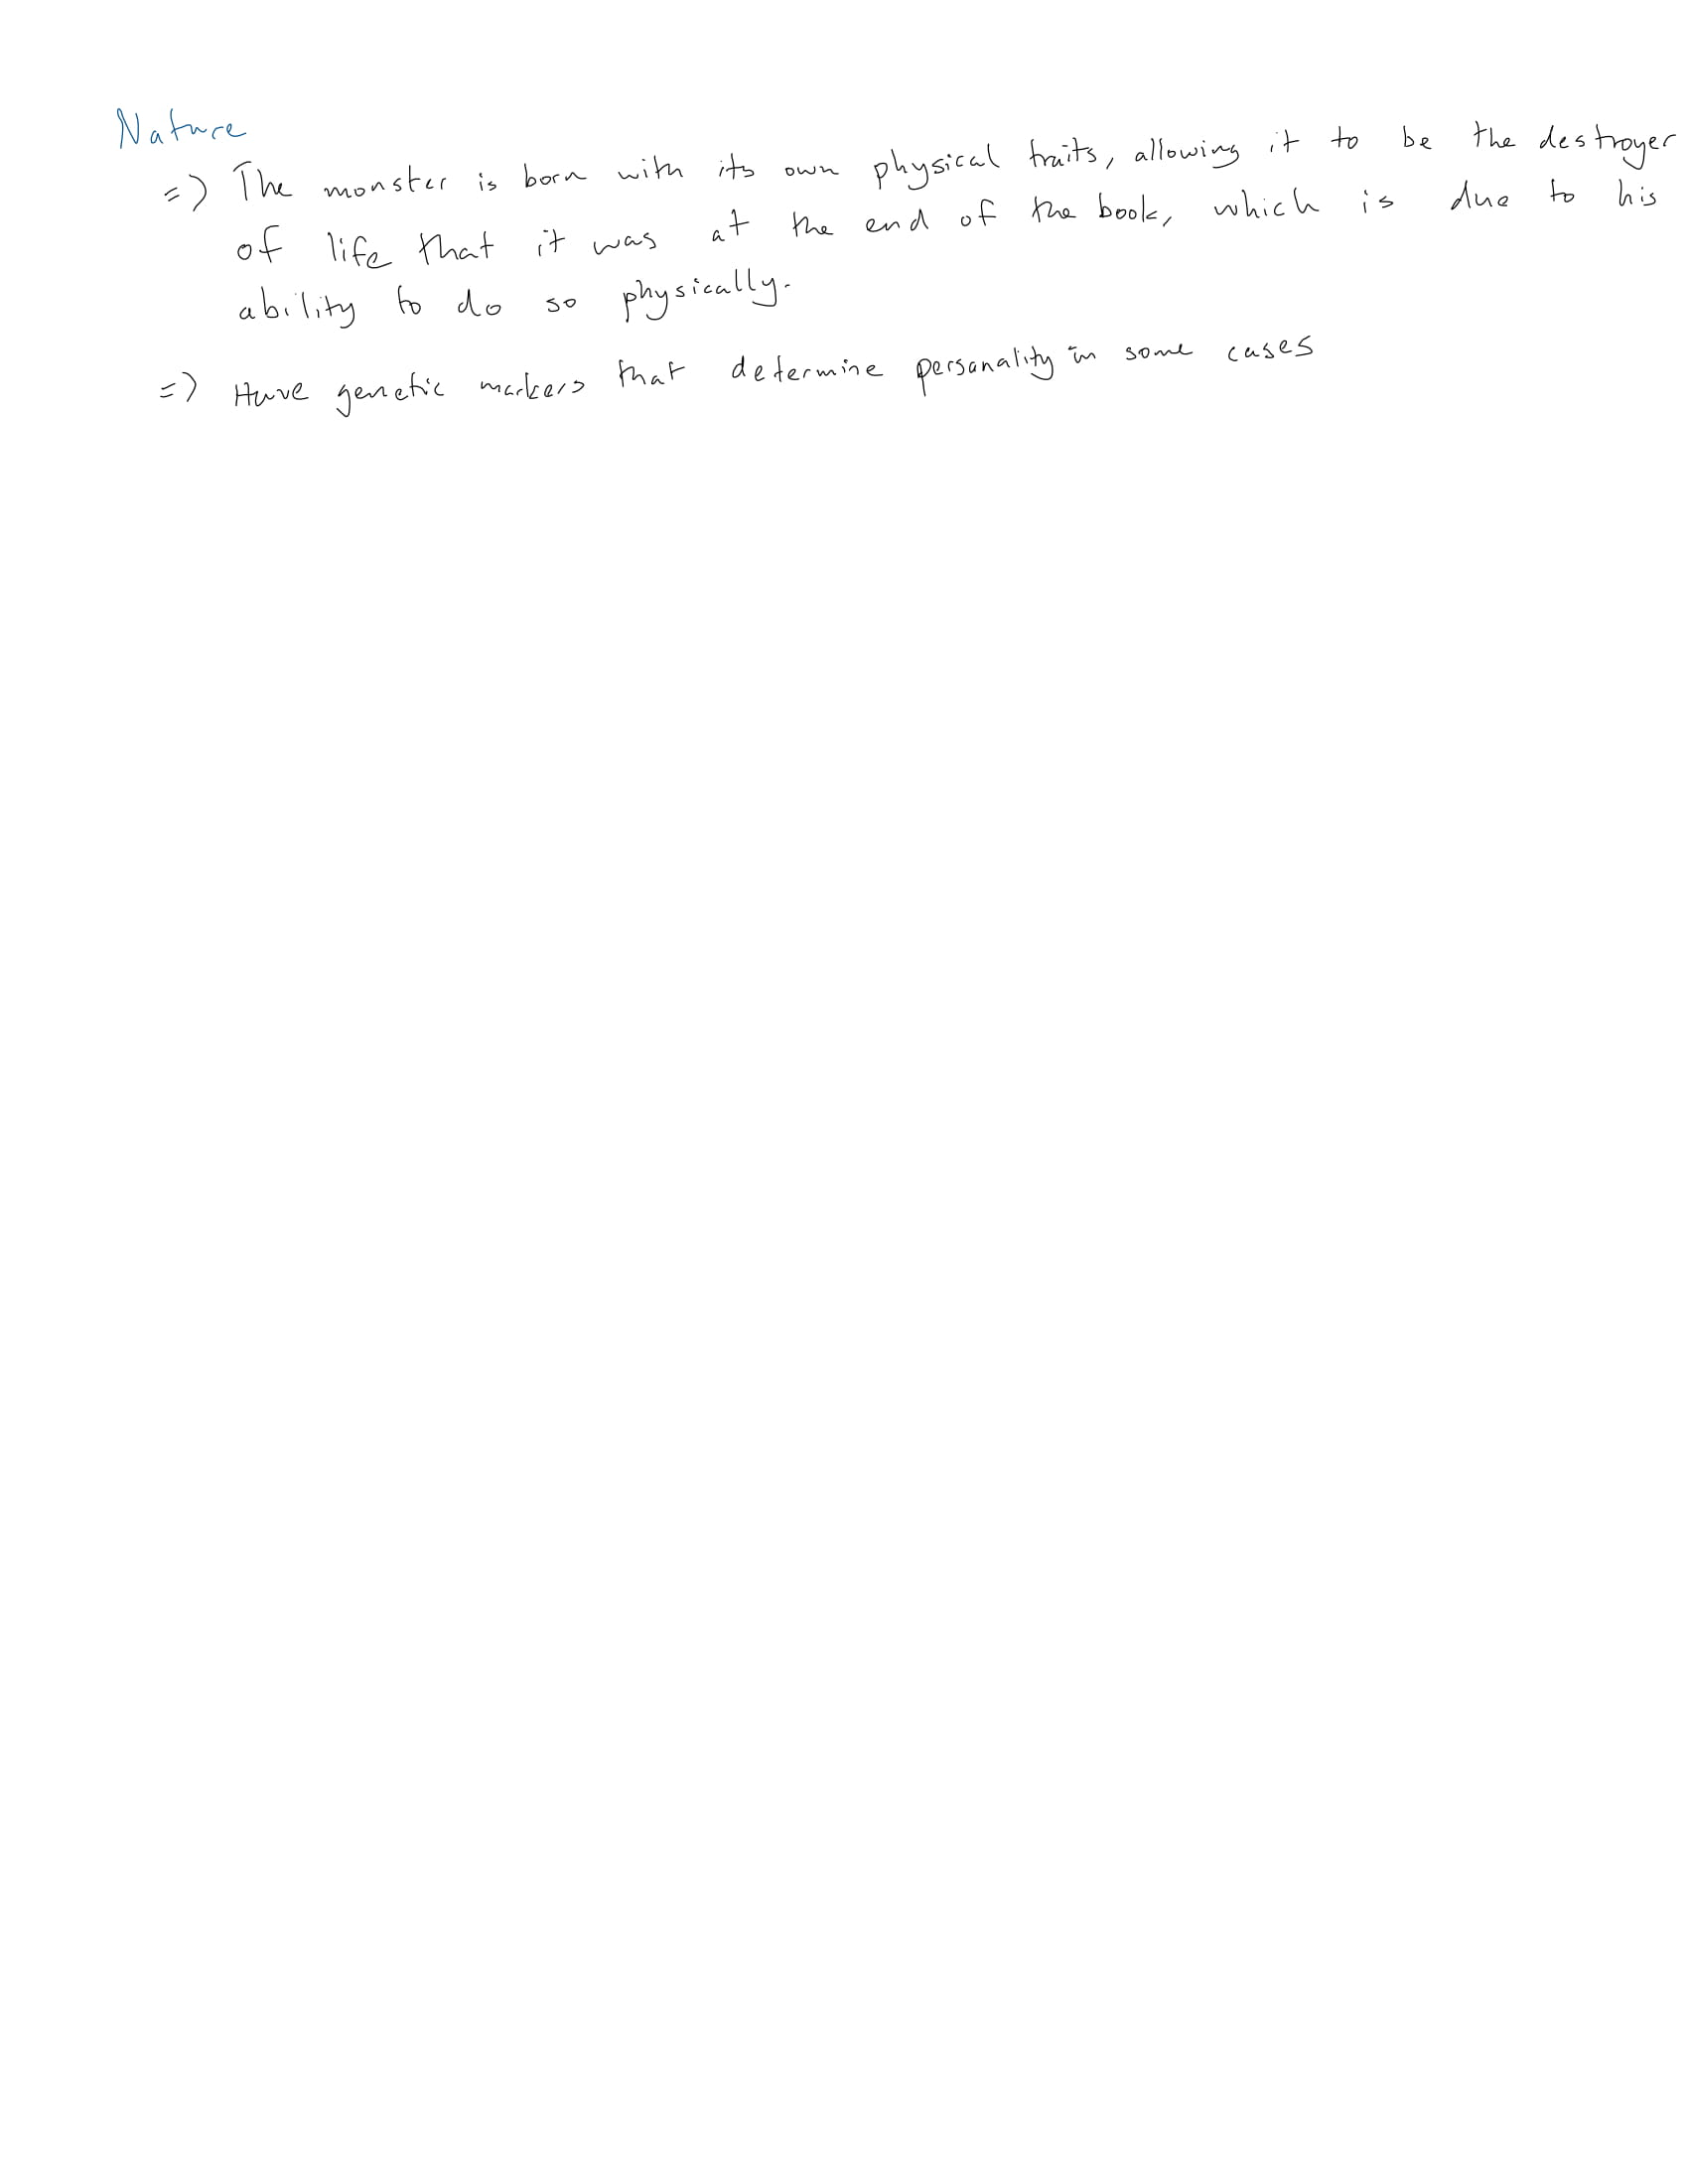 Nature
=> The monster is born with its own physical traits, allowing it to be the destroyer
of life that it was at the end of the book, which is due to his
ability to do so physically.
=> Have genetic markers that determine personality in some cases